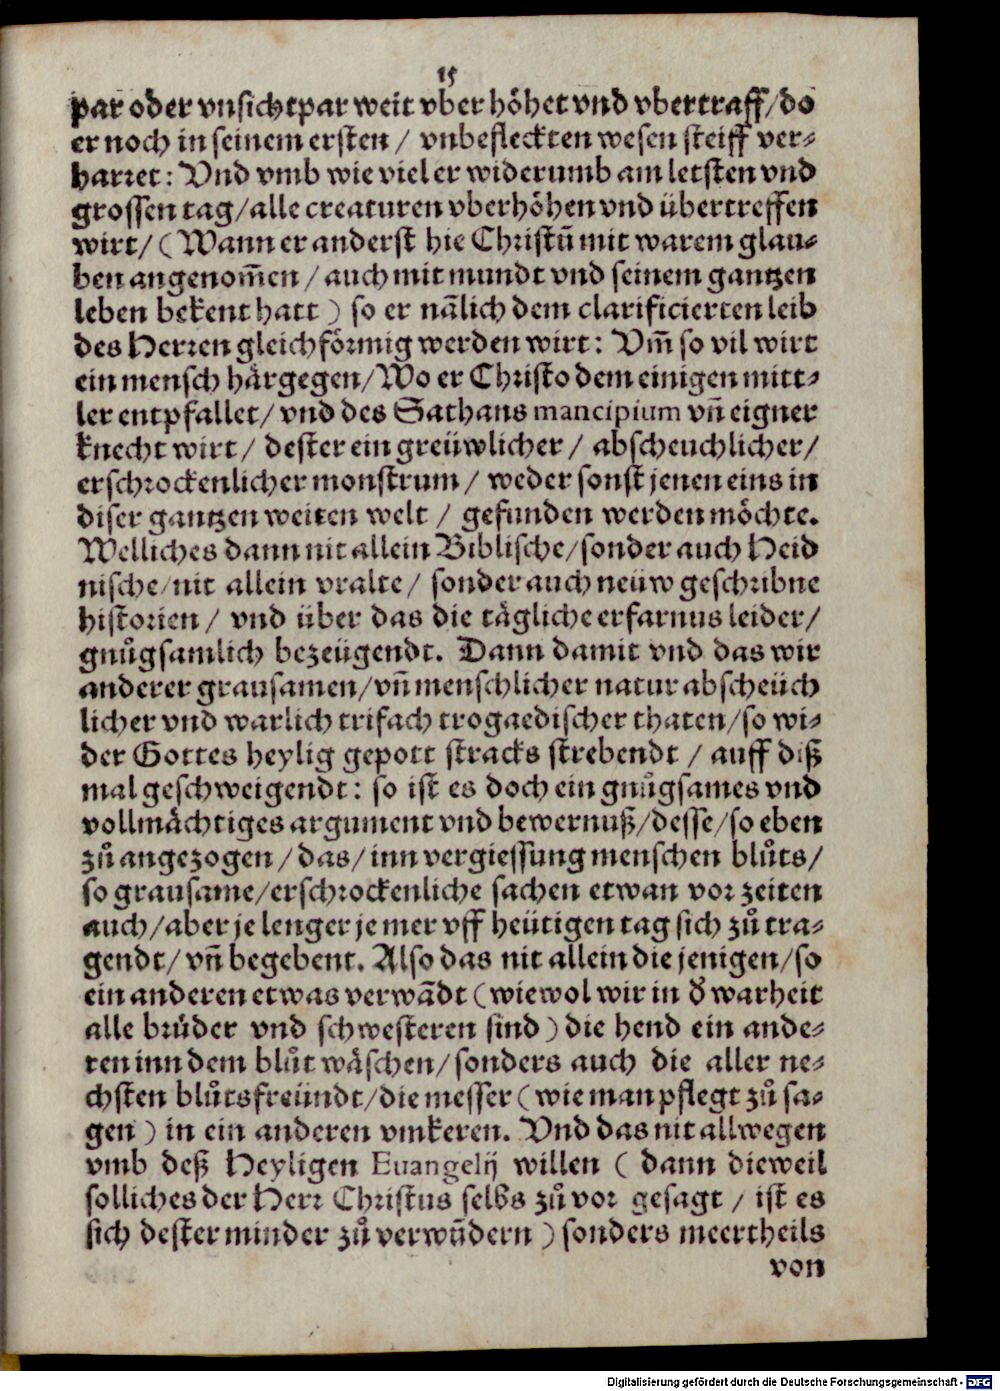 15
par oder vnsichtpar weit vber höhet vnd vbertraff/do
er noch in seinem ersten / vnbefleckten wesen steiff ver-
harret: Vnd vmb wie viel er widerumb am letsten vnd
grossen tag/alle creaturen vberhöhen vnd übertreffen
wirt/(Wann er anderst hie Christū mit warem glau-
ben angenom̄en / auch mit mundt vnd seinem gantzen
leben bekent hatt) so er nālich dem clarificierten leib
des Herren gleichförmig werden wirt: Vm̄ so vil wirt
ein mensch härgegen/Wo er Christo dem einigen mitt-
ler entpfallet/ vnd des Sathans mancipium vn̄ eigner
knecht wirt / dester ein greüwlicher / abscheuchlicher/
erschrockenlicher monstrum / weder sonst jenen eins in
diser gantzen weiten welt / gefunden werden möchte.
Welliches dann nit allein Biblische/sonder auch Heid
nische/nit allein vralte/ sonder auch neüw geschribne
historien / vnd über das die tägliche erfarnus leider/
gnůgsamlich bezeügendt. Dann damit vnd das wir
anderer grausamen/vn̄ menschlicher natur abscheüch
licher vnd warlich trifach trogaedischer thaten/so wi-
der Gottes heylig gepott stracks strebendt / auff diß
mal geschweigendt: so ist es doch ein gnůgsames vnd
vollmächtiges argument vnd bewernuß/desse/so eben
zů angezogen/das/inn vergiessung menschen blůts/
so grausame/erschrockenliche sachen etwan vor zeiten
auch/aber je lenger je mer vff heütigen tag sich zů tra-
gendt/vn̄ begebent. Also das nit allein die jenigen/so
ein anderen etwas verwādt (wiewol wir in d̕ warheit
alle brüder vnd schwesteren sind) die hend ein ande-
ren inn dem blůt wäschen/sonders auch die aller ne-
chsten blůtsfreündt/die messer (wie man pflegt zů sa-
gen) in ein anderen vmkeren. Vnd das nit allwegen
vmb deß Heyligen Euangelij willen (dann dieweil
solliches der Herr Christus selbs zů vor gesagt / ist es
sich dester minder zů verwūdern) sonders meertheils
von
Digitalisierung gefördert durch die Deutsche Forschungsgemeinschaft - DFG